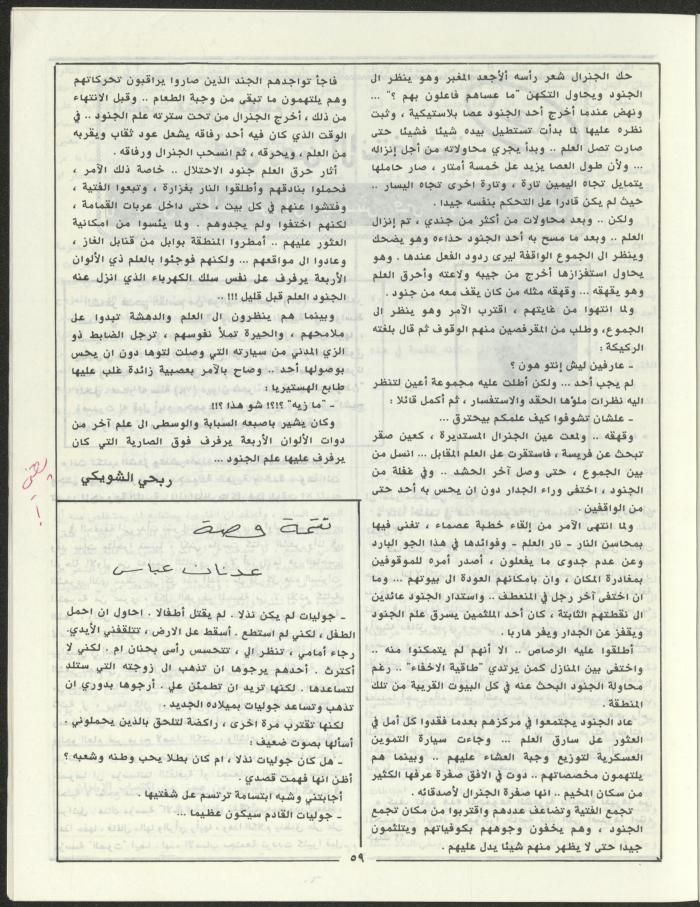 حك الجنرال شعر رأسه ألأجعد المغبر وهو ينظر ال
الجنود ويحاول التكهن "ما عساهم فاعلون بهم ؟" ...
ونهض عندما أخرج أحد الجنود عصا بلاستيكية ، وثبت
نظره عليها لما بدأت تستطيل بيده شيئا فشيئا حتى
صارت تصل العلم .. وبدأ يجري محاولاته من أجل إنزاله
... ولأن طول العصا يزيد عل خمسة أمتار ، صار حاملها
يتمايل تجاه اليمين تارة ، وتارة اخرى تجاه اليسار ..
حيث لم يكن قادرا عل التحكم بنفسه جيدا .
ولكن .. وبعد محاولات من أكثر من جندي ، تم إنزال
العلم .. وبعد ما مسح به أحد الجنود حذاءه وهو يضحك
وينظر ال الجموع الواقفة ليرى ردود الفعل عندها . وهو
يحاول استفزازها أخرج من جيبه ولاعته وأحرق العلم
وهو يقهقه ... وقهقه مثله من كان يقف معه من جنود .
ولما انتهوا من غايتهم ، اقترب الآمر وهو ينظر ال
الجموع، وطلب من المقرفصين منهم الوقوف ثم قال بلغته
الركيكة :
ـ عارفين ليش إنتو هون ؟
لم يجب أحد ... ولكن أطلت عليه مجموعة أعين لتنظر
اليه نظرات ملؤها الحقد والاستفسار ، ثم أكمل قائلا :
ـ علشان تشوفوا كيف علمكم بيحترق ...
وقهقه .. ولمعت عين الجنرال المستديرة ، كعين صقر
تبحث عن فريسة ، فاستقرت عل العلم المقابل ... انسل من
بين الجموع ، حتى وصل آخر الحشد .. وفي غفلة من
الجنود ، اختفى وراء الجدار دون إن يحس به أحد حتى
من الواقفين .
ولما انتهى الآمر من إلقاء خطبة عصماء ، تغنى فيها
بمحاسن النار ـ نار العلم ـ وفوائدها في هذا الجو البارد
وعن عدم جدوى ما يفعلون ، أصدر أمره للموقوفين
بمغادرة المكان ، وان بامكانهم العودة ال بيوتهم ... وما
ان اختفى آخر رجل في المنعطف .. واستدار الجنود عائدين
ال نقطتهم الثابتة ، كان أحد الملثمين يسرق علم الجنود
ويقفز عن الجدار ويفر هاربا .
أطلقوا عليه الرصاص .. الا أنهم لم يتمكنوا منه ..
واختفى بين المنازل كمن يرتدي "طاقية الاخفاء" .. رغم
محاولة الجنود البحث عنه في كل البيوت القريبة من تلك
المنطقة .
عاد الجنود يجتمعوا في مركزهم بعدما فقدوا كل أمل في
العثور عل سارق العلم ... وجاءت سيارة التموين
العسكرية لتوزيع وجبة العشاء عليهم .. وبينما هم
يلتهمون مخصصاتهم .. دوت في الافق صفرة عرفها الكثير
من سكان المخيم .. انها صفرة الجنرال لأصدقائه .
تجمع الفتية وتضاعف عددهم واقتربوا من مكان تجمع
الجنود ، وهم يخفون وجوههم بكوفياتهم ويتلثمون
جيدا حتى لا يظهر منهم شيئا يدل عليهم .
فاجأ تواجدهم الجند الذين صاروا يراقبون تحركاتهم
وهم يلتهمون ما تبقى من وجبة الطعام .. وقبل الانتهاء
من ذلك ، أخرج الجنرال من تحت سترته علم الجنود .. في
الوقت الذي كان فيه أحد رفاقه يشعل عود ثقاب ويقربه
من العلم ، ويحرقه ، ثم انسحب الجنرال ورفاقه .
أثار حرق العلم جنود الاحتلال .. خاصة ذلك الآمر ،
فحملوا بنادقهم وأطلقوا النار بغزارة ، وتبعوا الفتية ،
وفتشوا عنهم في كل بيت ، حتى داخل عربات القمامة ،
لكنهم اختفوا ولم يجدوهم . ولما يئسوا من امكانية
العثور عليهم .. أمطروا المنطقة بوابل من قنابل الغاز ،
وعادوا ال مواقعهم ... ولكنهم فوجئوا بالعلم ذي الألوان
الأربعة يرفرف عل نفس سلك الكهرباء الذي انزل عنه
الجنود العلم قبل قليل !!! ..
وبينما هم ينظرون ال العلم والدهشة تبدوا عل
ملامحهم ، والحيرة تملأ نفوسهم ، ترجل الضابط ذو
الزي المدني من سيارته التي وصلت لتوها دون ان يحس
بوصولها أحد .. وصاح بالآمر بعصبية زائدة غلب عليها
طابع الهستيريا :
ـ "ما زيه" ؟!؟! شو هذا ؟!!
وكان يشير باصبعه السبابة والوسطى ال علم آخر من
ذوات الألوان الأربعة يرفرف فوق الصارية التي كان
يرفرف عليها علم الجنود ...
ربحي الشويكي
تتمة قصة
عدنان عباس
ـ جوليات لم يكن نذلا . لم يقتل أطفالا . احاول ان احمل
الطفل ، لكني لم استطع . أسقط عل الارض ، تتلقفني الأيدي.
رجاء أمامي ، تنظر الي ، تتحسس رأسي بحنان ام . لكني لا
أكترث . أحدهم يرجوها ان تذهب ال زوجته التي ستلد
لتساعدها . لكنها تريد ان تطمئن علي . أرجوها بدوري ان
تذهب وتساعد جوليات بميلاده الجديد .
لكنها تقترب مرة اخرى ، راكضة لتلحق بالذين يحملوني .
أسألها بصوت ضعيف :
ـ هل كان جوليات نذلا ، ام كان بطلا يحب وطنه وشعبه ؟
أظن انها فهمت قصدي .
أجابتني وشبه ابتسامة ترتسم عل شفتيها .
ـ جوليات القادم سيكون عظيما ...
٥٩